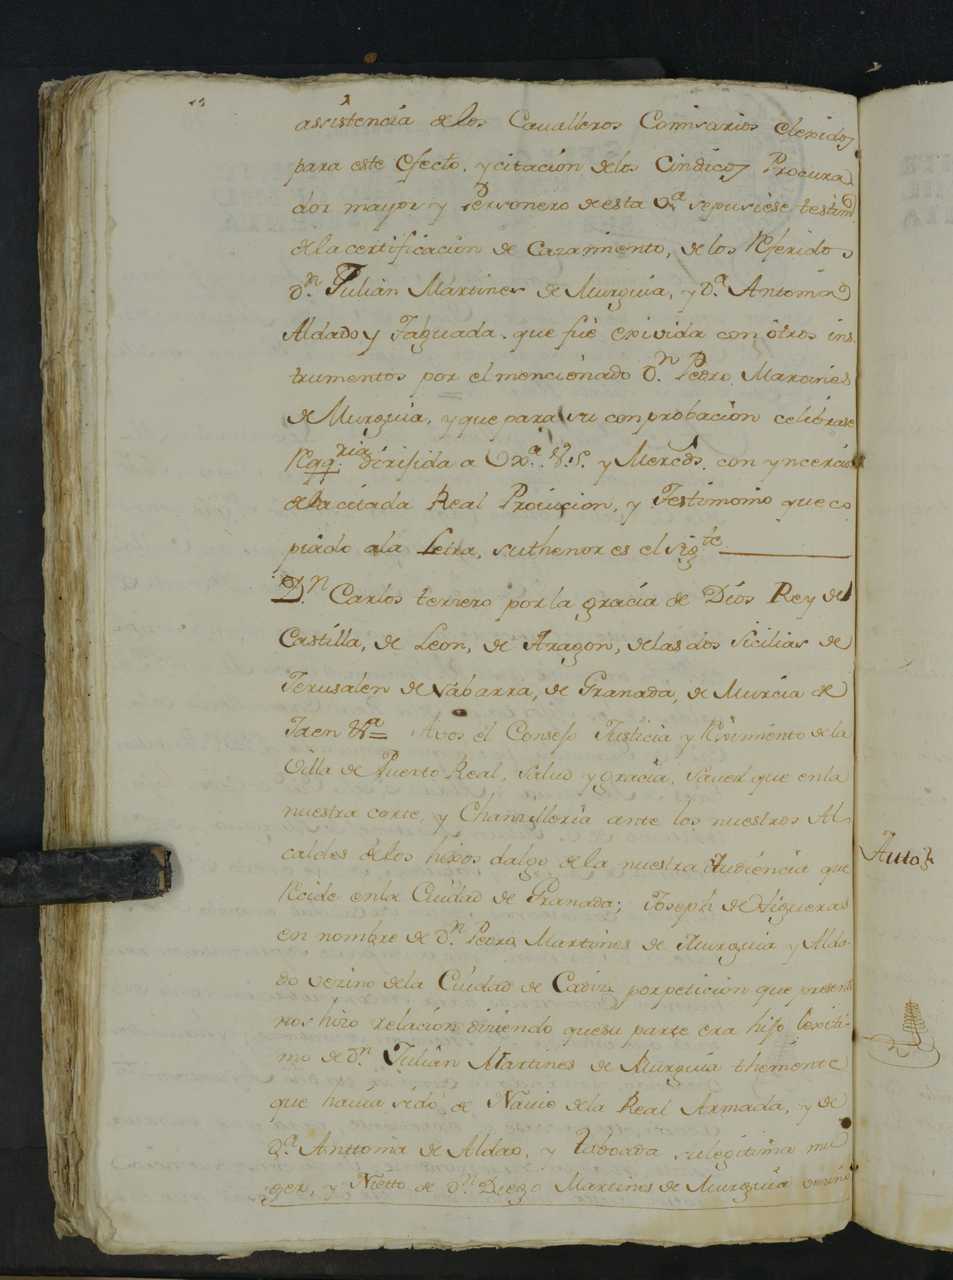 assistencia de los Caualleros Comisarios elexidos
para este efecto, y citacion delos Cindicos Procura
dor mayor y Personero de esta Va. sepusiese testimo
dela certificacion de Cazamiento, de los Referidos
Dn. Julian Martines de Murguia, y Da. Antonia
Aldado y Taguada, que fue exivida con otros ins
trumentos por el mencionado Dn. Pedro Martines
de Murguia, y que para su comprobacion celebrase
Reqqria. dirifida a V. S. y Merced, con yncercion
dela citada Real Provicion, y Testimonio que co
piado ala Letra, suthenor es el sigte
Dn. Carlos tercero por la gracia de Dios Rey de
Castilla, de Leon, de Aragon, delas dos Sicilias de
Jerusalen de Nabarra, de Granada, de Murcia de
Jaen &a = Avos el Consejo Justicia y Reximiento dela
Villa de Puerto Real, salud y gracia, saved que enla
nuestra corte, y Chansilleria ante los nuestros Al
caldes delos hixos dalgo dela nuestra Audiencia que
Recide enla Ciudad de Granada; Joseph de Higueras
en nombre de Dn. Pedro Martines de Murguia y Alda
do vecino dela Ciudad de Cadiz, por peticion que presento
nos hizo relacion diciendo quesu parte era hijo lexiti
mo de Dn. Julian Martines de Murguia theniente
que hauia sido de Nauio dela Real Armada, y de
Da. Anttonia de Aldao, y Taboada sulegitima mu
ger, y Nietto de Dn. Diego Martines de Murguia vecino
Autoz